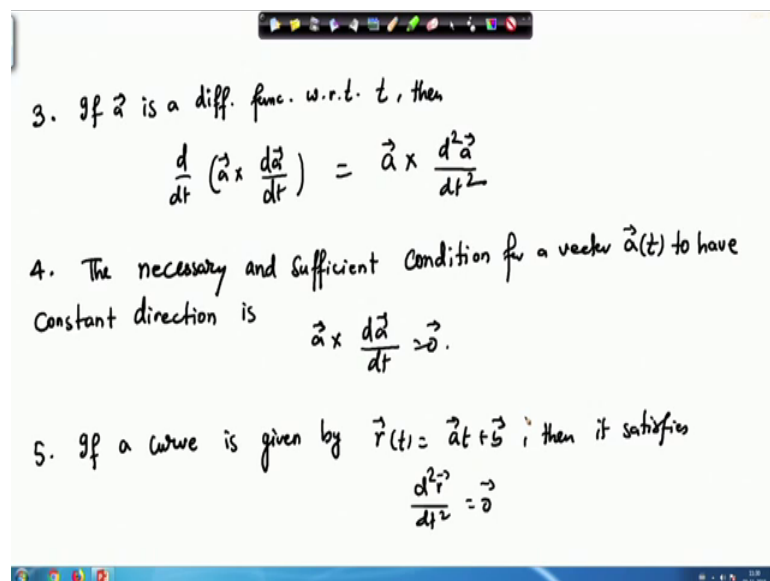 3. If a⃗ is a diff. func. w.r.t. t, then
d/dt (a⃗ × da⃗/dt) = a⃗ × d²a⃗/dt²
4. The necessary and sufficient condition for a vector a⃗(t) to have
constant direction is
a⃗ × da⃗/dt = 0⃗.
5. If a curve is given by r⃗(t) = a⃗t + b⃗ ; then it satisfies
d²r⃗/dt² = 0⃗